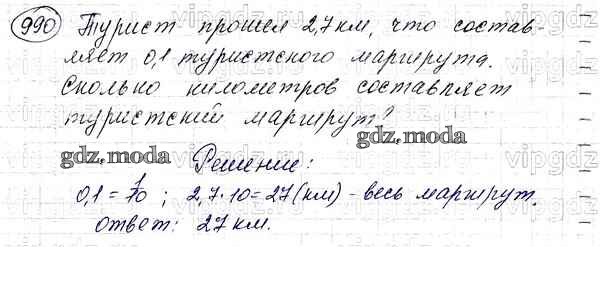 990 Турист прошел 2,7 км, что состав-
ляет 0,1 туристского маршрута.
Сколько километров составляет
туристский маршрут?
gdz.moda
gdz.moda
Решение:
0,1 = 1/10 ; 2,7 · 10 = 27 (км) - весь маршрут.
ответ: 27 км.